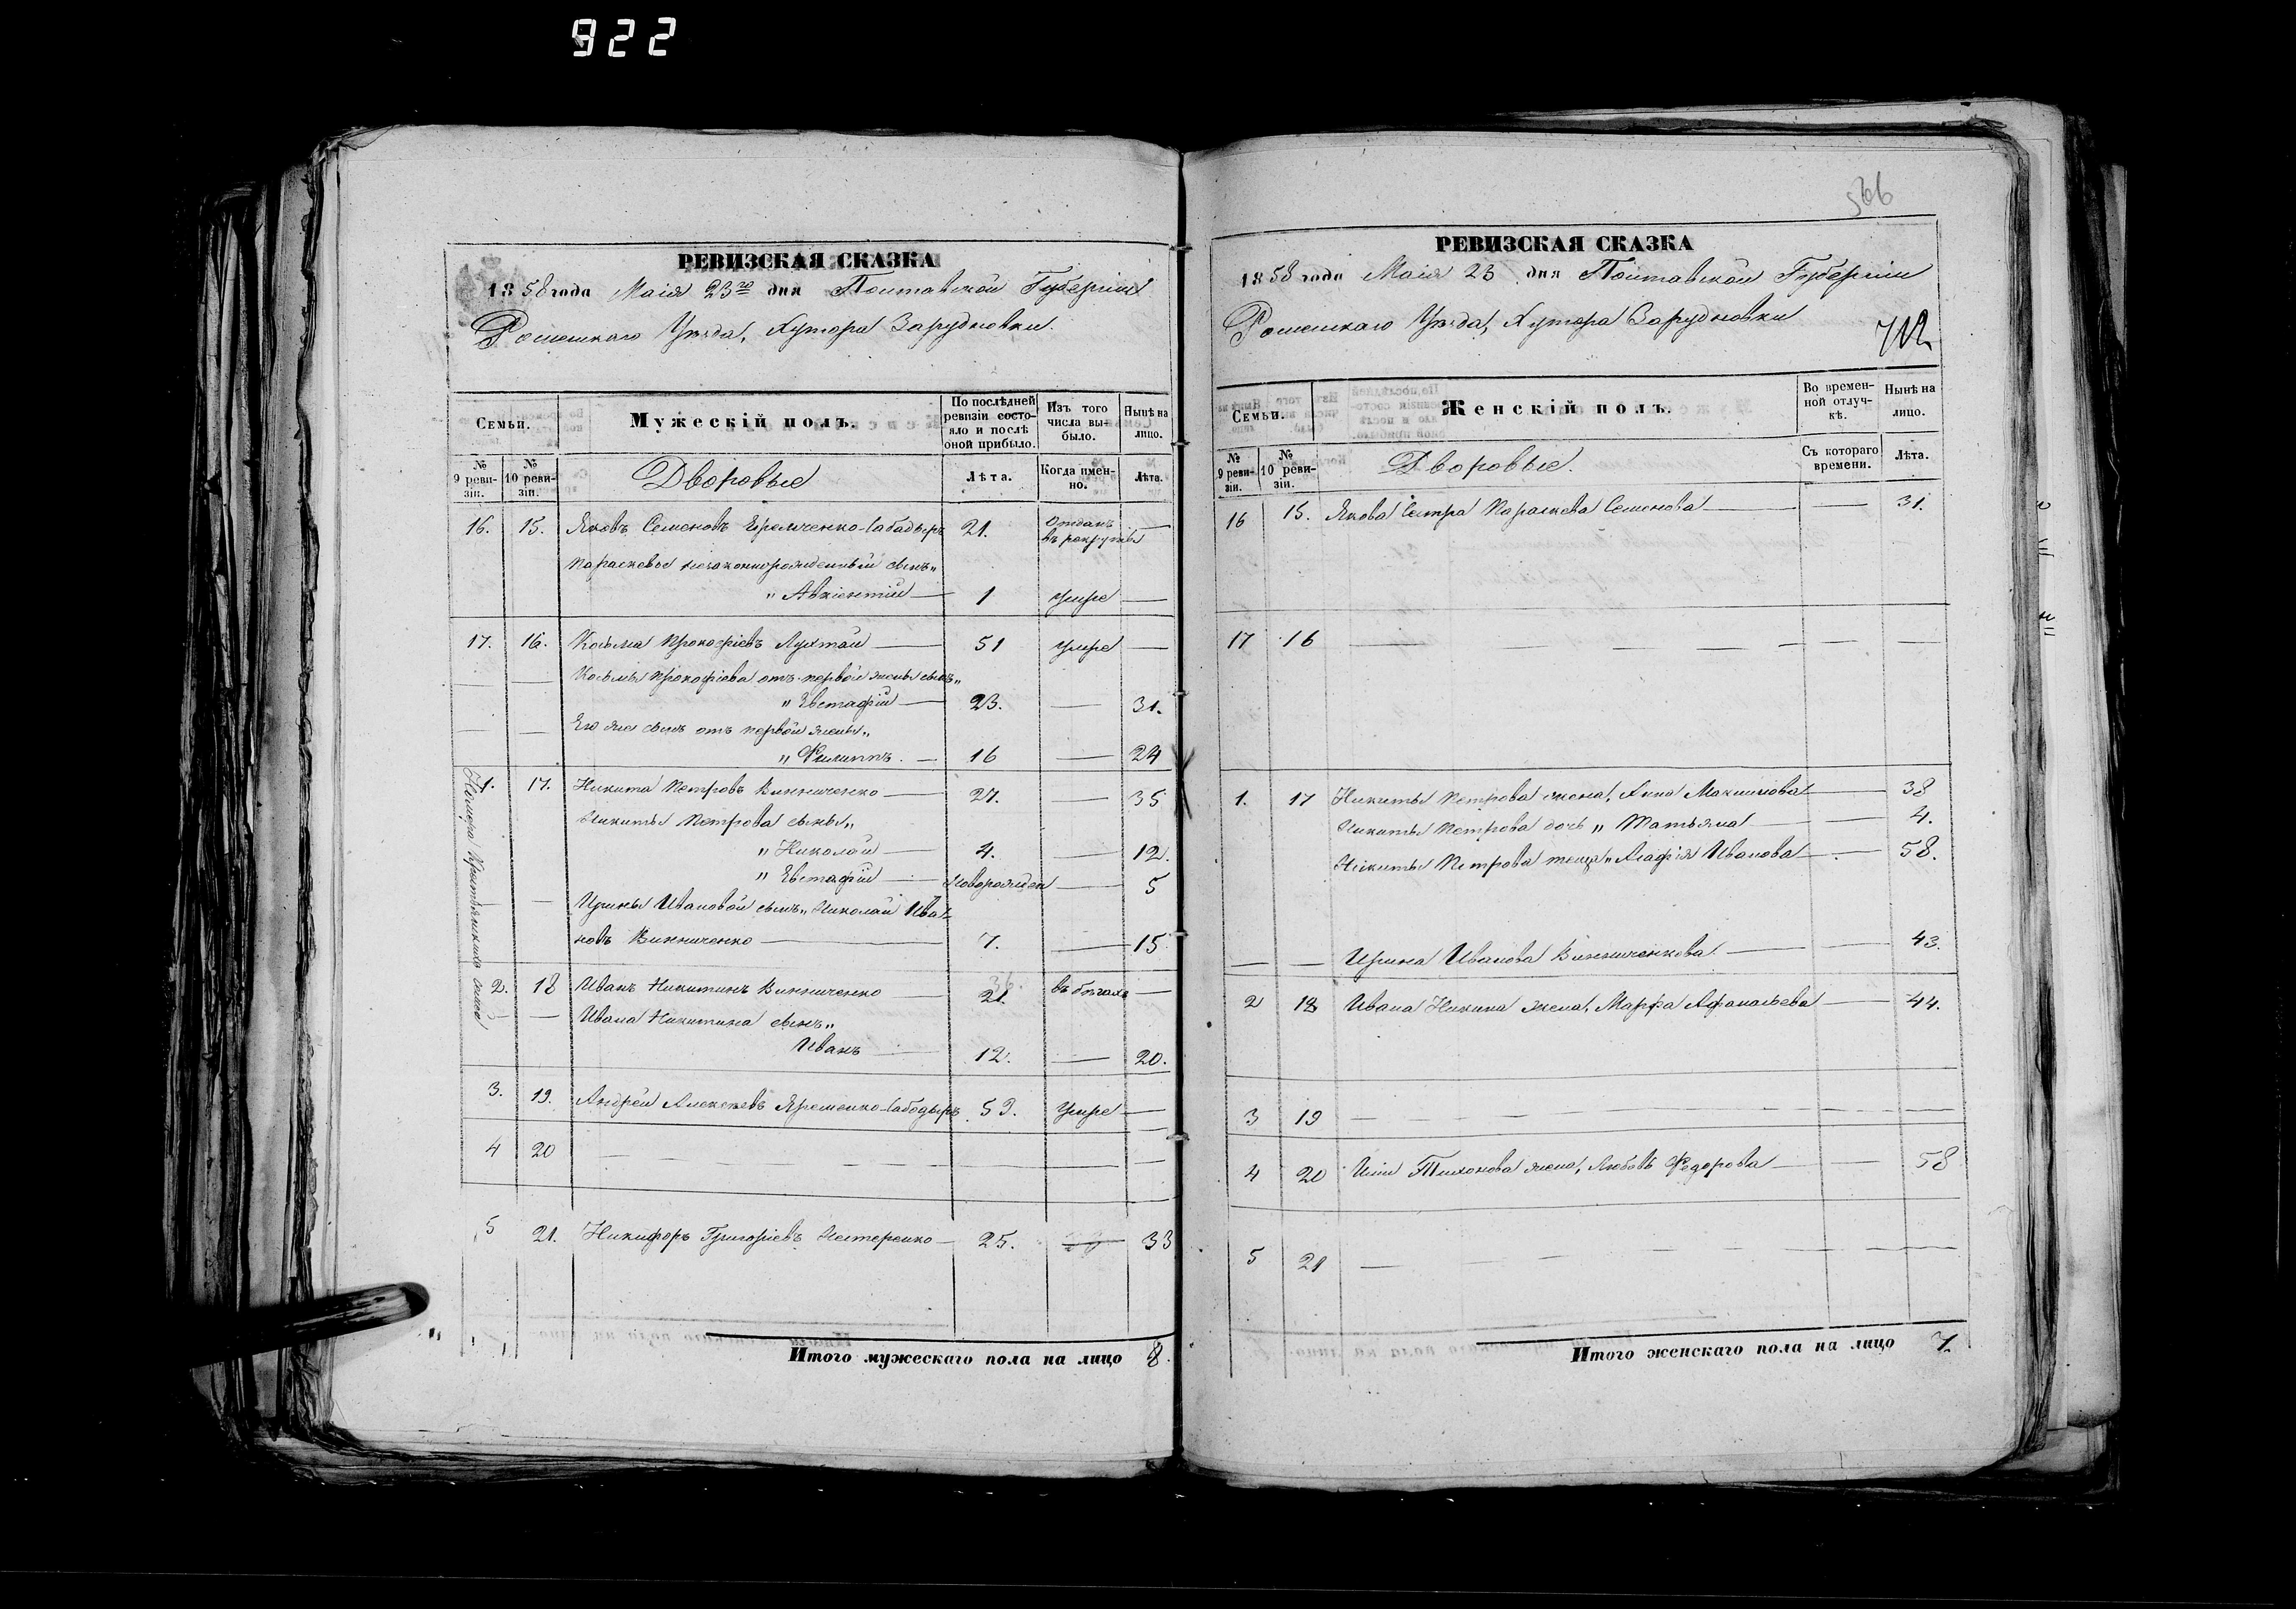 922
РЕВИЗСКАЯ СКАЗКА
1858 года Маія 23го дня Полтавской Губерніи
Роменскаго Уѣзда, Хутора Зарудновки.
Семьи.
Мужескій полъ.
По послѣдней ревизіи состояло и послѣ оной прибыло.
Изъ того числа выбыло.
Нынѣ на лицо.
№ 9 ревизіи.
№ 10 ревизіи.
Дворовые
Лѣта.
Когда именно.
Лѣта.
16. 15. Яковъ Семеновъ 21. Отданъ въ рекруты —
Параскевы незаконнорожденный сынъ„
„ Авксентій — 1 умре —
17. 16. Косьма Прокофіевъ Лухтай — 51 умре —
— — Косьмы Прокофіева отъ первой жены сынъ„
„ Евстафій — 23. — 31.
— — Его же сынъ отъ первой жены„
„ Филиппъ. — 16 — 24
1. 17. Никита Петровъ Винниченко — 27. — 35
Никиты Петрова сыны„
„ Николай — 4. — 12.
„ Евстафій — новорожден — 5
— — Ирины Ивановой сынъ„ Николай Ива-
новъ Винниченко — 7. — 15
2. 18 Иванъ Никитинъ Винниченко — 21. въ бѣгахъ —
— — Ивана Никитина сынъ„
Иванъ — 12. — 20.
3. 19. Андрей Алексѣевъ Яременко-Сабодыръ 59. Умре —
4 20 — — — — — — —
5 21. Никифоръ Григоріевъ Нестеренко — 25. — 33
Итого мужескаго пола на лицо 8.
566
РЕВИЗСКАЯ СКАЗКА
1858 года Маія 23 дня Полтавской Губерніи
Роменскаго Уѣзда, Хутора Зарудновки
712
Семьи.
Женскій полъ.
Во временной отлучкѣ.
Нынѣ на лицо.
№ 9 ревизіи.
№ 10 ревизіи.
Дворовые.
Съ котораго времени.
Лѣта.
16 15. Якова Сестра Параскева Семенова — — 31.
17 16 — — — — — —
1. 17 Никиты Петрова жена, Анна Максимова — — 38
Никиты Петрова дочь „ Татьяна — — 4.
Никиты Петрова теща „ Агафія Иванова — — 58.
— — Ирина Иванова Винниченкова — — 43.
2 18 Ивана Никина жена, Марфа Афанасьева — — 44.
3 19 — — — — — —
4 20 Тихонова жена, Любовь Федорова — — 58
5 21 — — — — — —
Итого женскаго пола на лицо 7.